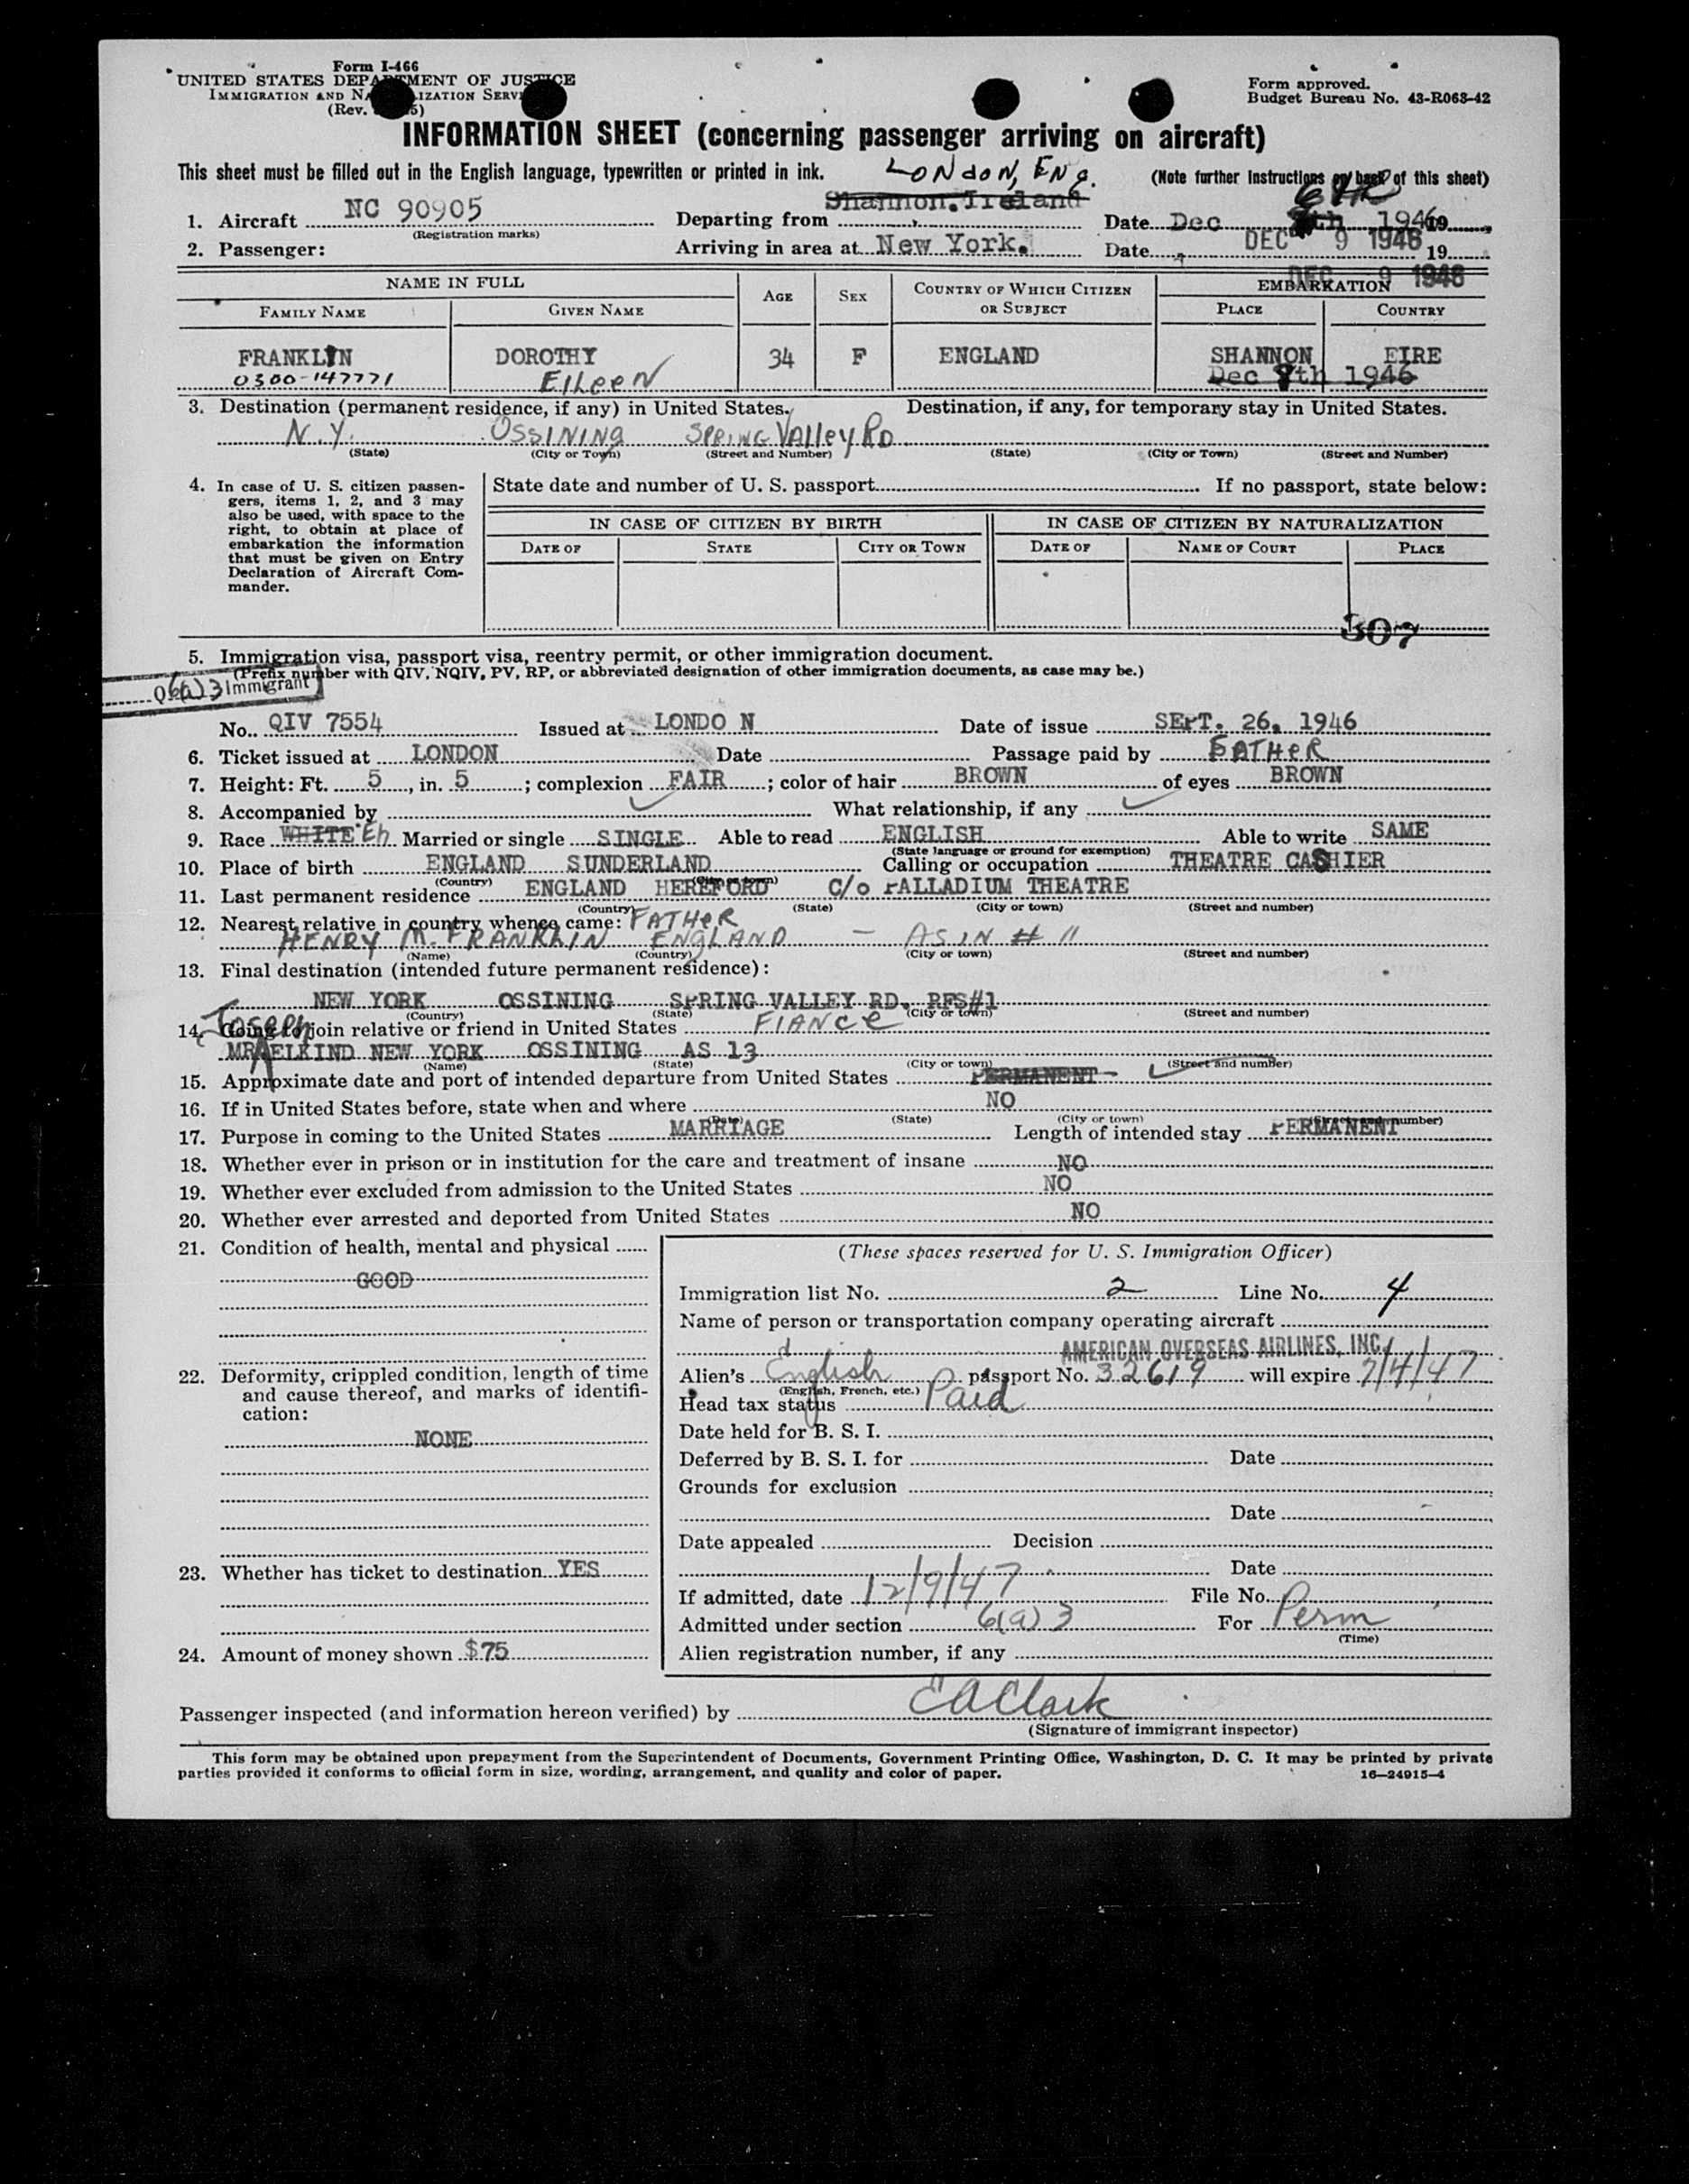 Form I-466
UNITED STATES DEPARTMENT OF JUSTICE
IMMIGRATION AND NATURALIZATION SERVICE
(Rev. 5)
Form approved.
Budget Bureau No. 43-R063-42
INFORMATION SHEET (concerning passenger arriving on aircraft)
This sheet must be filled out in the English language, typewritten or printed in ink. (Note further Instructions on back of this sheet)
LONDON, ENg.
1. Aircraft NC 90905 Departing from Shannon. Ireland Date Dec 8th 1946 19
(Registration marks)
2. Passenger: Arriving in area at New York. Date DEC 9 1946 19
DEC 9 1946
NAME IN FULL AGE SEX COUNTRY OF WHICH CITIZEN OR SUBJECT EMBARKATION
FAMILY NAME GIVEN NAME PLACE COUNTRY
FRANKLIN DOROTHY 34 F ENGLAND SHANNON EIRE
0300-147771 EILeeN Dec 8th 1946
3. Destination (permanent residence, if any) in United States. Destination, if any, for temporary stay in United States.
N.Y. OSSINING SPRING VAlleY RD
(State) (City or Town) (Street and Number) (State) (City or Town) (Street and Number)
4. In case of U. S. citizen passengers, items 1, 2, and 3 may also be used, with space to the right, to obtain at place of embarkation the information that must be given on Entry Declaration of Aircraft Commander.
State date and number of U. S. passport If no passport, state below:
IN CASE OF CITIZEN BY BIRTH IN CASE OF CITIZEN BY NATURALIZATION
DATE OF STATE CITY OR TOWN DATE OF NAME OF COURT PLACE
307
5. Immigration visa, passport visa, reentry permit, or other immigration document.
(Prefix number with QIV, NQIV, PV, RP, or abbreviated designation of other immigration documents, as case may be.)
6(a)3 Immigrant
No. QIV 7554 Issued at LONDO N Date of issue SEPT. 26, 1946
6. Ticket issued at LONDON Date Passage paid by FATHER
7. Height: Ft. 5, in. 5; complexion FAIR; color of hair BROWN of eyes BROWN
8. Accompanied by What relationship, if any
9. Race WHITE Eh Married or single SINGLE Able to read ENGLISH Able to write SAME
(State language or ground for exemption)
10. Place of birth ENGLAND SUNDERLAND Calling or occupation THEATRE CASHIER
(Country) (City or town)
11. Last permanent residence ENGLAND HEREFORD C/o PALLADIUM THEATRE
(Country) (State) (City or town) (Street and number)
12. Nearest relative in country whence came: FATHeR
HENRY M. FRANKLIN ENgLAND - AS IN # 11
(Name) (Country) (City or town) (Street and number)
13. Final destination (intended future permanent residence):
NEW YORK OSSINING SPRING VALLEY RD. RFS#1
(Country) (State) (City or town) (Street and number)
14. Going to join relative or friend in United States FIANCe
Joseph
MR ELKIND NEW YORK OSSINING AS 13
(Name) (State) (City or town) (Street and number)
15. Approximate date and port of intended departure from United States PERMANENT -
16. If in United States before, state when and where NO
(Date) (State) (City or town) (Street and number)
17. Purpose in coming to the United States MARRIAGE Length of intended stay PERMANENT
18. Whether ever in prison or in institution for the care and treatment of insane NO
19. Whether ever excluded from admission to the United States NO
20. Whether ever arrested and deported from United States NO
21. Condition of health, mental and physical
GOOD
22. Deformity, crippled condition, length of time and cause thereof, and marks of identification:
NONE
23. Whether has ticket to destination YES
24. Amount of money shown $75
(These spaces reserved for U. S. Immigration Officer)
Immigration list No. 2 Line No. 4
Name of person or transportation company operating aircraft
AMERICAN OVERSEAS AIRLINES, INC.
Alien's English passport No. 32619 will expire 7/4/47
(English, French, etc.)
Head tax status Paid
Date held for B. S. I.
Deferred by B. S. I. for Date
Grounds for exclusion
Date
Date appealed Decision
Date
If admitted, date 12/9/47 File No.
Admitted under section 6(a)3 For Perm
(Time)
Alien registration number, if any
Passenger inspected (and information hereon verified) by EAClark
(Signature of immigrant inspector)
This form may be obtained upon prepayment from the Superintendent of Documents, Government Printing Office, Washington, D. C. It may be printed by private
parties provided it conforms to official form in size, wording, arrangement, and quality and color of paper. 16—24915-4